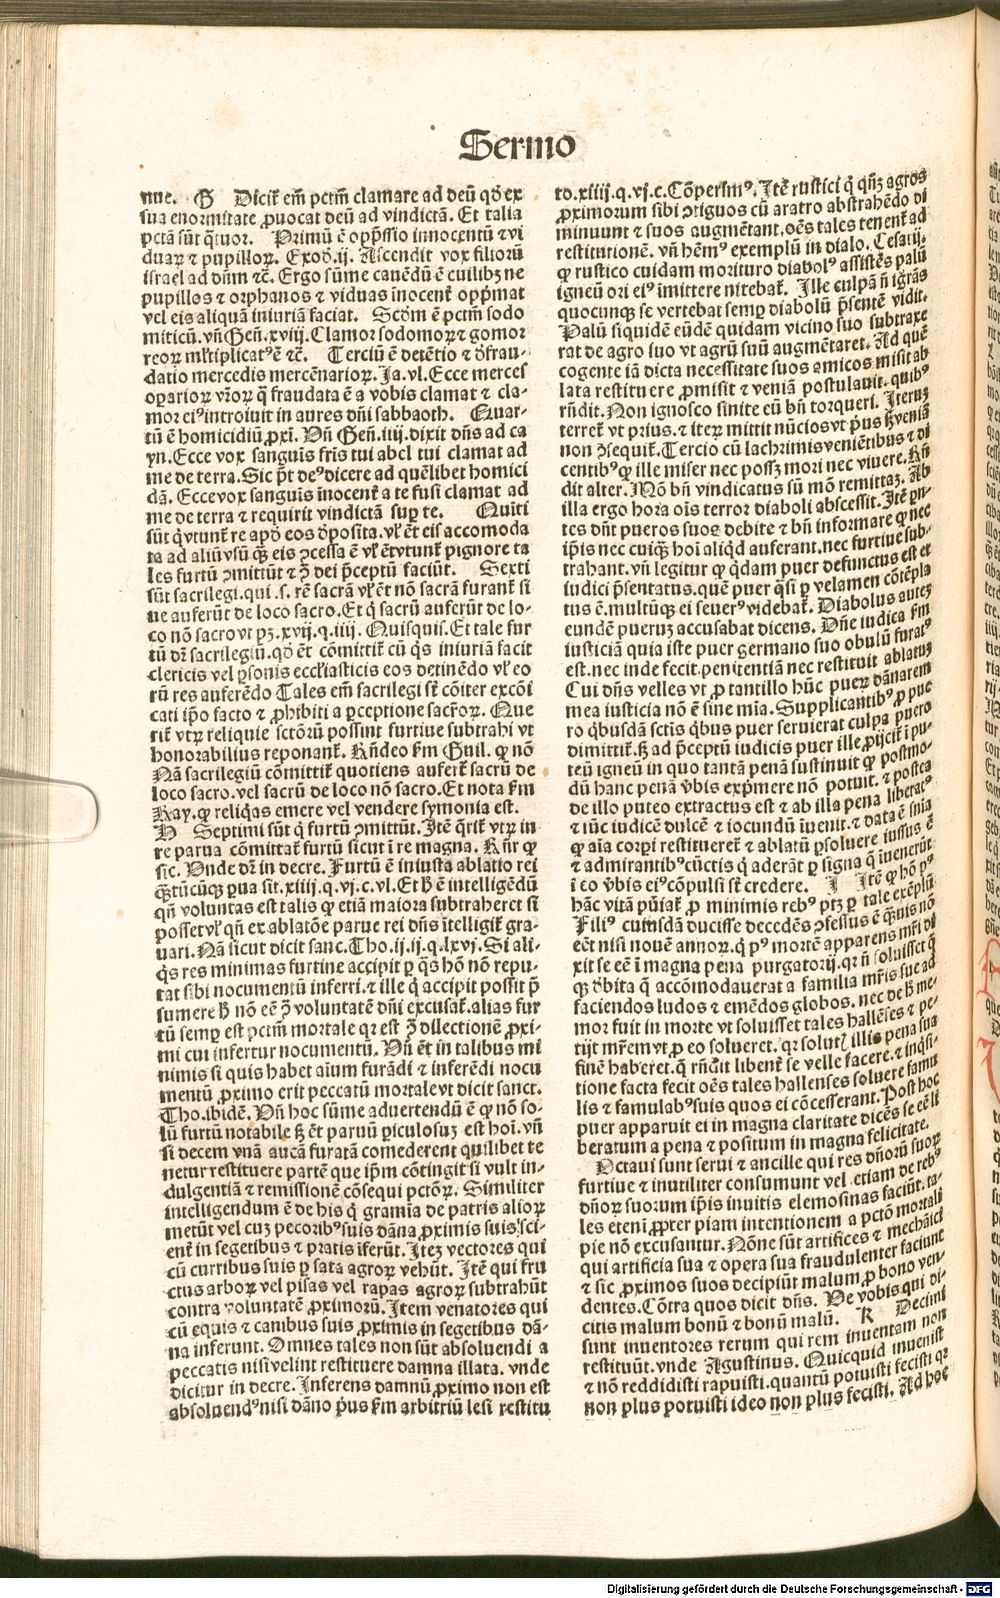 Sermo
nue. G Dicit̄ em̄ pctm̄ clamare ad deū qđ ex
sua enormitate ꝓuocat deū ad vindictā. Et talia
pctā sūt q̈tuor. Primū ē opp̄ssio innocentū ⁊ vi
duaꝝ ⁊ pupilloꝝ. Exođ.ij. Ascendit vox filiorū
israel ad dn̄m ⁊c̄. Ergo sūme canēdū ē cuilibꝫ ne
pupillos ⁊ orphanos ⁊ viduas īnocent̄ opp̄mat
vel eis aliquā iniuriā faciat. Scđm ē pctm̄ sodo
miticū. vn̄ Gen̄. xviij. Clamor sodomoꝝ ⁊ gomor
reoꝝ ml̄tiplicatꝰ ē ⁊c̄. Terciū ē detētio ⁊ đfrau-
datio mercedis mercēnarioꝝ. Ja. vl. Ecce merces
oꝑarioꝝ vr̄oꝝ q̄ fraudata ē a vobis clamat ⁊ cla-
mor eiꝰ introiuit in aures dn̄i sabbaoth. Quar-
tū ē homicidiū ꝓxi. Vn̄ Gen̄. iiij. dixit dn̄s ad ca
yn. Ecce vox sanguis fr̄is tui abel tui clamat ad
me de terra. Sic p̄t deꝰ dicere ad quēlibet homici
dā. Ecce vox sanguis īnocent̄ a te fusi clamat ad
me de terra ⁊ requirit vindictā suꝑ te. Quīti
sūt q̇ vtunt̄ re apđ eos đposita. vl̄ ēt eis accomoda
ta ad aliū vsū q̄ꝫ eis ɔcessa ē vl̄ ēt vtunt̄ pignore ta
les furtū ɔmittūt ⁊ ꝯ̄ dei p̄ceptū faciūt. Sexti
sūt sacrilegi. qui .s. rē sacrā vl̄ ēt nō sacrā furant̄ si
ue auferūt de loco sacro. Et q̇ sacrū auferūt de lo-
co nō sacro vt pꝫ. xvij. q. iiij. Quisquis. Et tale fur
tū dr̄ sacrilegiū. qđ ēt cōmittit̄ cū q̇s iniuriā facit
clericis vel ꝑsonis eccl̄iasticis eos detinēdo vl̄ eo
rū res auferēdo Tales em̄ sacrilegi st̄ cōiter excōi
cati ip̄o facto ⁊ ꝓhibiti a ꝑceptione sacr̄oꝝ. Que
rit̄ vtꝝ reliquie sctōrū possint furtiue subtrahi vt
honorabilius reponant̄. Rn̄deo fm̄ Guil. ꝙ nō
Nā sacrilegiū cōmittit̄ quotiens aufert̄ sacrū de
loco sacro. vel sacrū de loco nō sacro. Et nota fm̄
Ray. ꝙ reliq̇as emere vel vendere symonia est.
H Septimi sūt q̇ furtū ɔmittūt. Itē q̄rit̄ vtꝝ in
re parua cōmittat̄ furtū sicut ī re magna. Rn̄r ꝙ
sic. Vnde dr̄ in decre. Furtū ē iniusta ablatio rei
q̄ꝫtūcūqꝫ ꝑua sit. xiiij. q. vj. c. vl. Et ħ ē intelligēdū
qn̄ voluntas est talis ꝙ etiā maiora subtraheret si
posset vl̄ qn̄ ex ablatōe parue rei dn̄s ītelligit̄ gra-
uari. Nā sicut dicit sanc. Tho. ij. ij. q. lxvj. Si ali-
q̇s res minimas furtine accipit ꝑ q̇s hō nō repu-
tat sibi nocumentū inferri. ⁊ ille q̇ accipit possit p̄
sumere ħ nō eē ꝯ̄ voluntatē dn̄i excusat̄. alias fur
tū semꝑ est pctm̄ mortale qꝛ est ꝯ̄ dilectionē ꝓxi-
mi cui infertur nocumentū. Vn̄ ēt in talibus mi
nimis si quis habet aīum furādi ⁊ inferēdi nocu
mentū ꝓximo erit peccatū mortale vt dicit sanct.
Tho. ibidē. Vn̄ hoc sūme aduertendū ē ꝙ nō so-
lū furtū notabile ß ēt paruū ꝑiculosuꝫ est hoī. vn̄
si decem vnā aucā furatā comederent quilibet te
netur restituere partē que ip̄m cōtingit si vult in-
dulgentiā ⁊ remissionē cōsequi pctōꝝ. Similiter
intelligendum ē de his q̇ gramīa de patris alioꝝ
metūt vel cuꝫ pecoribꝰ suis dāna ꝓximis suis sci-
ent̄ in segetibus ⁊ pratis īferūt. Iteꝫ vectores qui
cū curribus suis ꝑ sata agroꝝ vehūt. Itē qui fru
ctus arboꝝ vel pisas vel rapas agroꝝ subtrahūt
contra voluntatē ꝓximorū. Item venatores qui
cū equis ⁊ canibus suis ꝓximis in segetibus dā-
na inferunt. Omnes tales non sūt absoluendi a
peccatis nisi velint restituere damna illata. vnde
dicitur in decre. Inferens damnū ꝓximo non est
absoluendꝰ nisi dāno p̄us fm̄ arbitriū lesi restitu
to. xiiij. q. vj. c. Cōpersmꝰ. Itē rustici q̇ qn̄ꝫ agros
ꝓximorum sibi ɔtiguos cū aratro abstrahēdo di
minuunt ⁊ suos augmētant. oēs tales tenent̄ ad
restitutionē. vn̄ hēmꝰ exemplū in dialo. Cesarij.
ꝙ rustico cuidam morituro diabolꝰ assistēs palū
igneū ori eiꝰ īmittere nitebat̄. Ille culpā n̄ igrās
quocunqꝫ se vertebat semꝑ diabolū p̄sentē vidit.
Palū siquidē eūdē quidam vicino suo subtraxe
rat de agro suo vt agrū suū augmētaret. Ad quē
cogente iā dicta necessitate suos amicos misit ab
lata restituere ꝓmisit ⁊ veniā postulauit. quibꝰ
rn̄dit. Non ignosco sinite eū bn̄ torqueri. Iteruꝫ
terret̄ vt prius. ⁊ iteꝝ mittit nūcios vt p̄us ß veniā
non ɔsequit̄. Tercio cū lachrimis veniētibus ⁊ di
centibꝰ ꝙ ille miser nec possꝫ mori nec viuere. Rn̄
dit alter. Mō bn̄ vindicatus sū mō remittaꝫ. Ab
illa ergo hora oīs terror diaboli abscessit. Itē pn̄-
tes dn̄t pueros suos debite ⁊ bn̄ informare ꝙ nec
ip̄is nec cuiqꝫ hoī aliqđ auferant. nec furtiue sub-
trahant. vn̄ legitur ꝙ q̇dam puer defunctus est et
iudici p̄sentatus. quē puer q̄si ꝑ velamen cōtēpla
tus ē. multūqꝫ ei seuerꝰ videbat̄. Diabolus auteꝫ
eundē pueruꝫ accusabat dicens. Dn̄e iudica fm̄
iusticiā quia iste puer germano suo obulū furatꝰ
est. nec inde fecit. penitentiā nec restituit ablatuꝫ
Cui dn̄s velles vt ꝓ tantillo hūc pueꝝ dānarem
mea iusticia nō ē sine mīa. Supplicantibꝰ ꝓ pue
ro q̇busdā sctīs q̇bus puer seruierat culpa puero
dimittit̄. ß ad p̄ceptū iudicis puer ille ꝓijcit̄ ī pu-
teū igneū in quo tantā penā sustinuit ꝙ postmo-
dū hanc penā v̄bis exp̄mere nō potuit. ⁊ postea
de illo puteo extractus est ⁊ ab illa pena liberatꝰ
⁊ tūc iudicē dulcē ⁊ iocundū īuenit. ⁊ data ē snīa
ꝙ aīa corpi restitueret̄ ⁊ ablatū ꝑsoluere iussus ē
⁊ admirantibꝰ cūctis q̇ aderāt ꝑ signa q̄ īuenerūt
ī eo v̄bis eiꝰ cōpulsi st̄ credere. I Itē ꝙ hō pꝰ
hāc vitā pūiat̄ ꝓ minimis rebꝰ ptꝫ ꝑ tale exēplū
Filiꝰ cuiusdā ducisse decedēs ɔfessus ē q̄uis nō
eēt nisi nouē annoꝝ. q̇ pꝰ mortē apparens mr̄i di
xit se eē ī magna pena purgatorij. qꝛ n̄ soluisset q̄
qꝫ đbita q̄ accōmodauerat a familia mr̄is sue ad
faciendos ludos ⁊ emēdos globos. nec de ħ me-
mor fuit in morte vt soluisset tales hallēses ⁊ pe-
tijt mr̄em vt ꝓ eo solueret. qꝛ solutꝭ illis pena sua
finē haberet. q̄ rn̄dit libent̄ se velle facere. ⁊ inq̇si-
tione facta fecit oēs tales hallenses soluere famu
lis ⁊ famulabꝰ suis quos ei cōcesserant. Post hoc
puer apparuit ei in magna claritate dicēs se eē li
beratum a pena ⁊ positum in magna felicitate.
Octaui sunt serui ⁊ ancille qui res dn̄orū suoꝝ
furtiue ⁊ inutiliter consumunt vel etiam de rebꝰ
dn̄oꝝ suorum ip̄is inuitis elemosinas faciūt. ta-
les etenī ꝓpter piam intentionem a pctō mortali
pie nō excusantur. Nōne sūt artifices ⁊ mechāici
qui artificia sua ⁊ opera sua fraudulenter faciunt
⁊ sic ꝓximos suos decipiūt malum ꝓ bono ven-
dentes. Cōtra quos dicit dn̄s. Ve vobis qui di-
citis malum bonū ⁊ bonū malū. K Decimi
sunt inuentores rerum qui rem inuentam non
restituūt. vnde Agustinus. Quicquid inuenist
⁊ nō reddidisti rapuisti. quantū potuisti fecisti qꝛ
non plus potuisti ideo non plus fecisti. Ad hoc
Digitalisierung gefördert durch die Deutsche Forschungsgemeinschaft - DFG